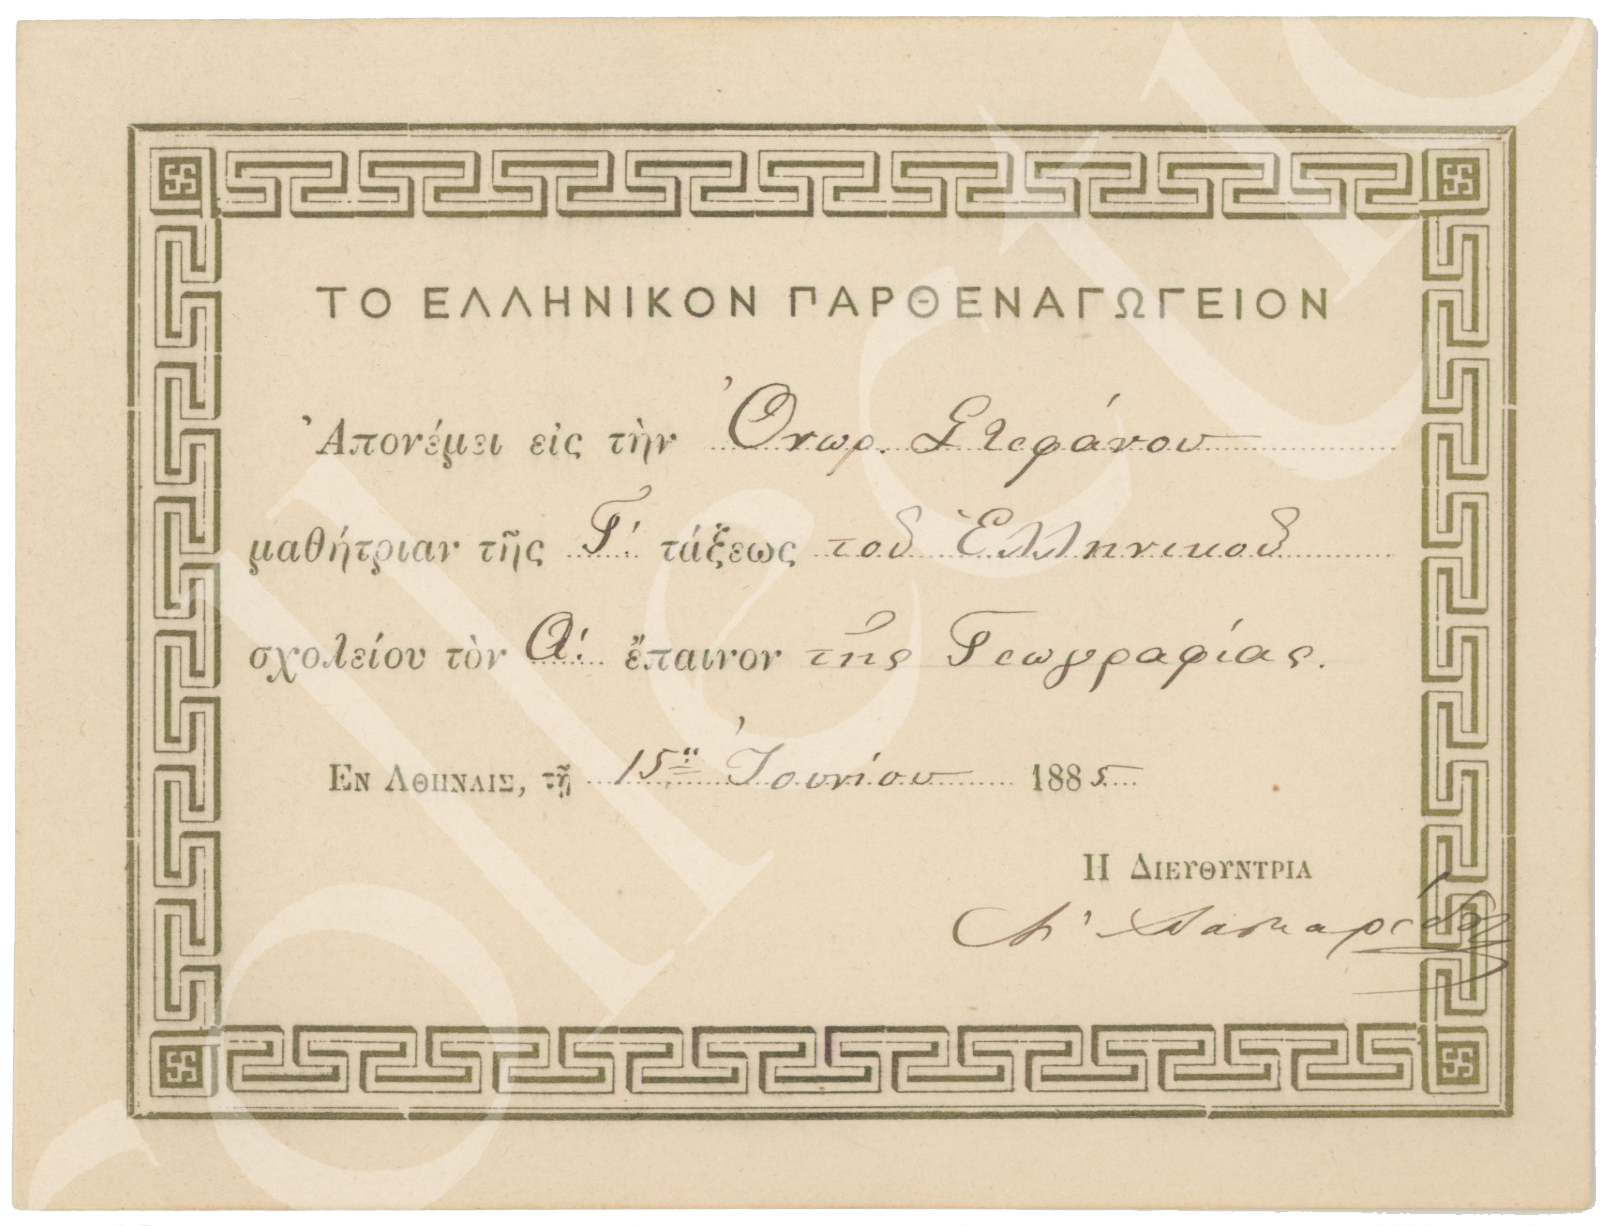 ΤΟ ΕΛΛΗΝΙΚΟΝ ΠΑΡΘΕΝΑΓΩΓΕΙΟΝ
Ἀπονέμει εἰς τὴν Ὀνωρ. Στεφάνου
μαθήτριαν τῆς Γ΄. τάξεως τοῦ Ἑλληνικοῦ
σχολείου τὸν Α΄. ἔπαινον τῆς Γεωγραφίας.
ΕΝ ΑΘΗΝΑΙΣ, τῇ 15ῃ Ἰουνίου 1885
Η ΔΙΕΥΘΥΝΤΡΙΑ
collectio